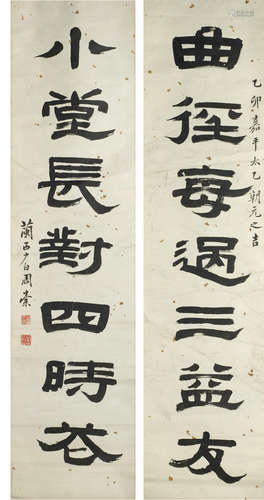 曲徑每過三益友
乙卯嘉平太乙朝元之吉
小堂長對四時花
蘭西少白周棠